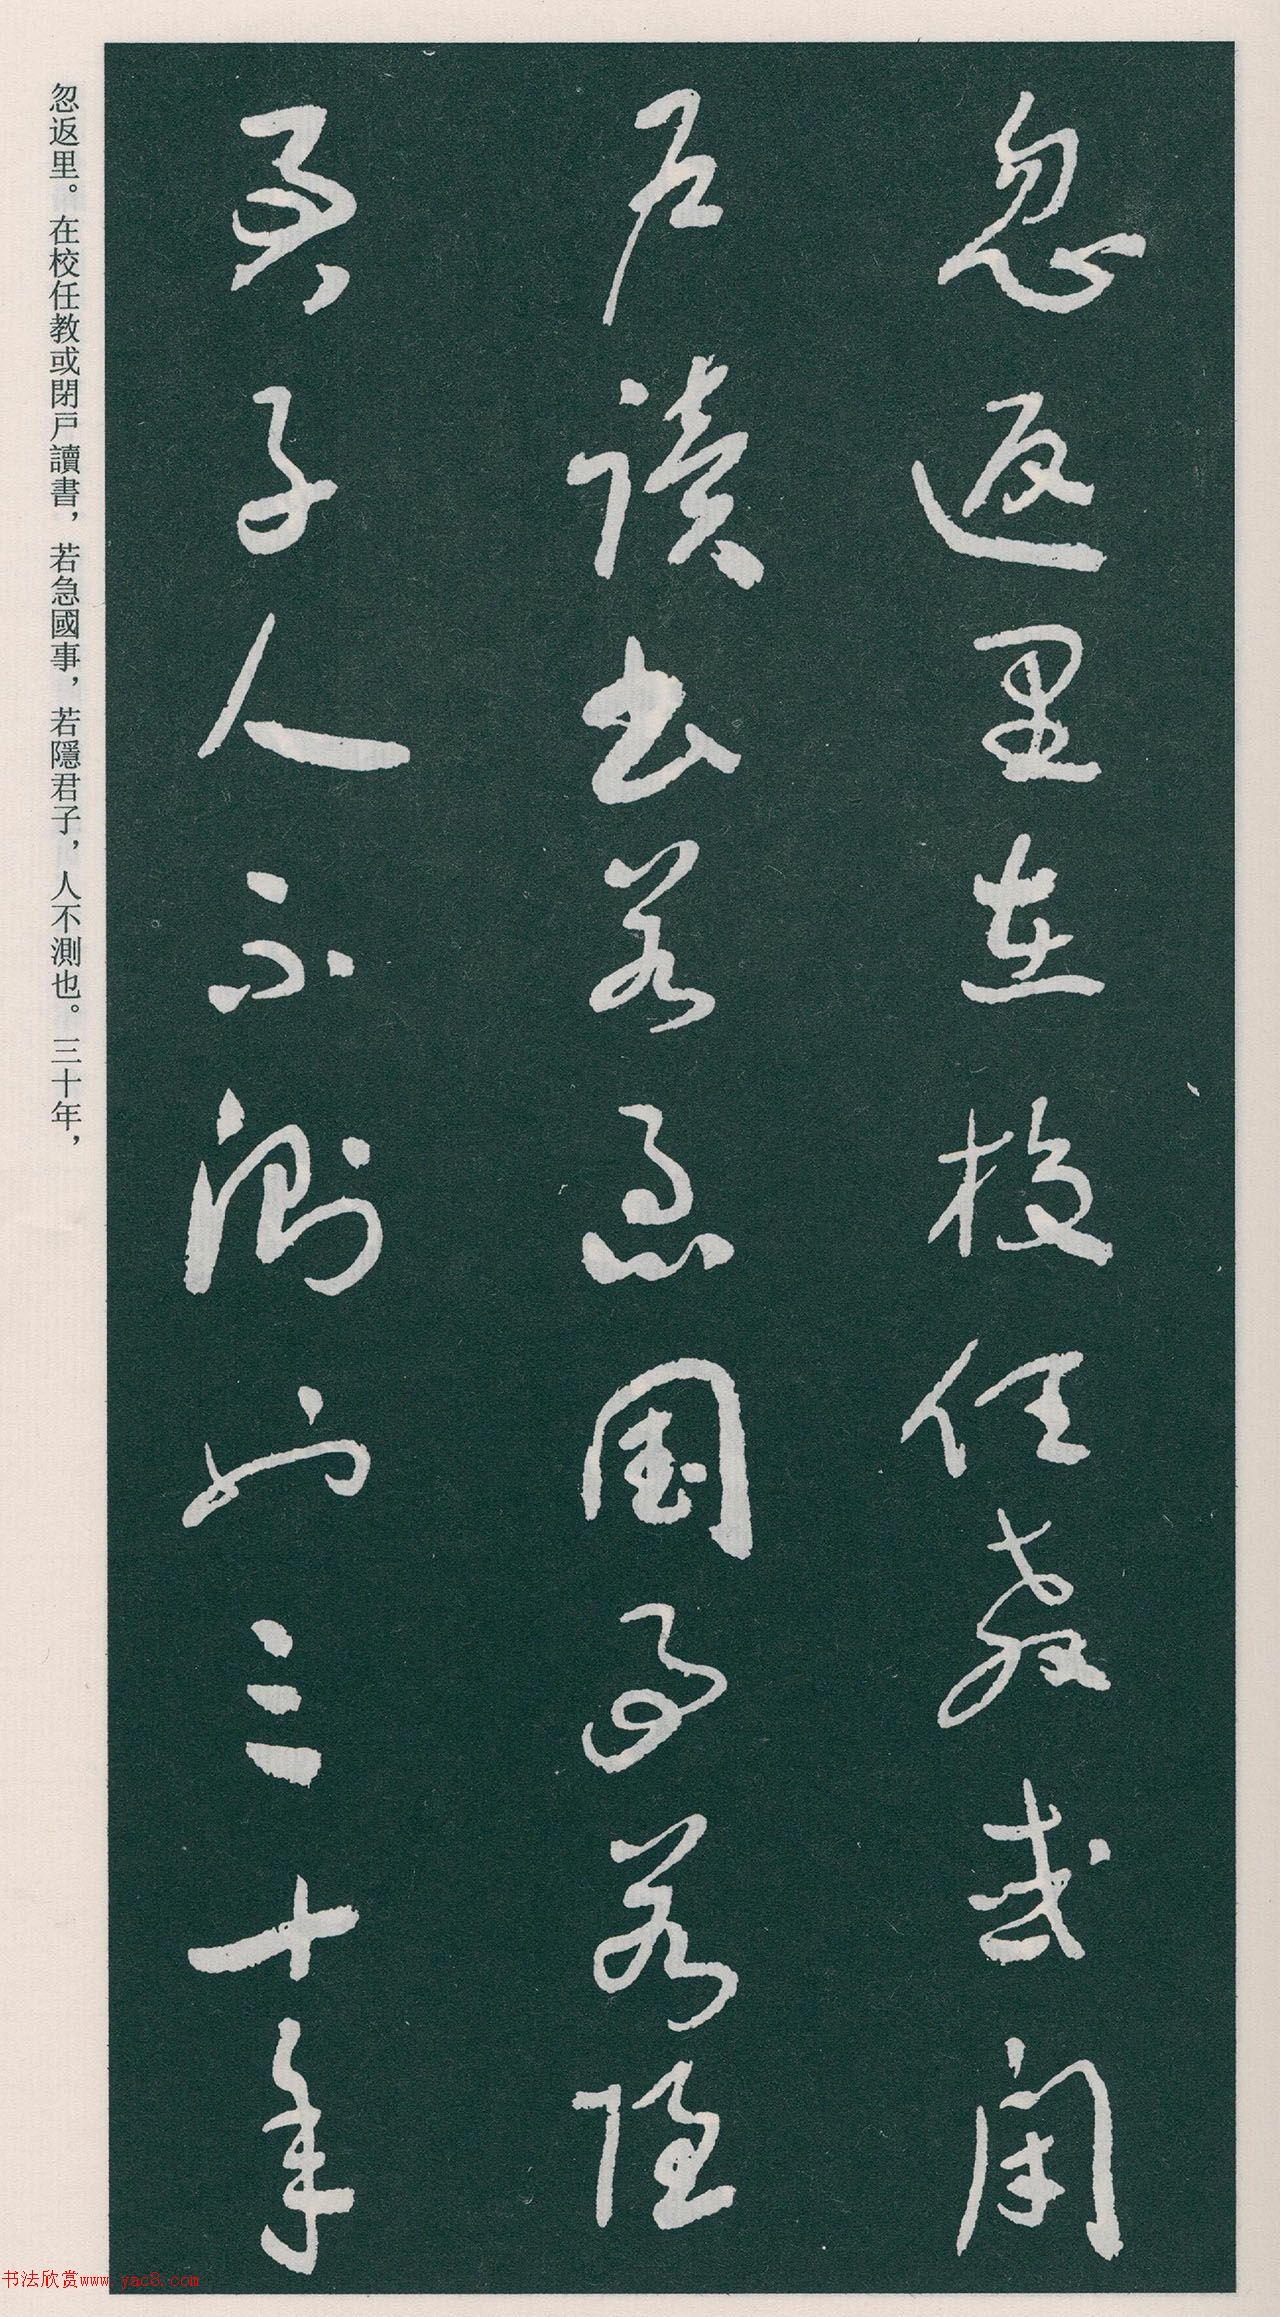 忽返里在校任教或閉
户讀書若急國事若隱
君子人不測也三十年
忽返里。在校任教或閉戶讀書，若急國事，若隱君子，人不測也。三十年，
书法欣赏www.yac8.com